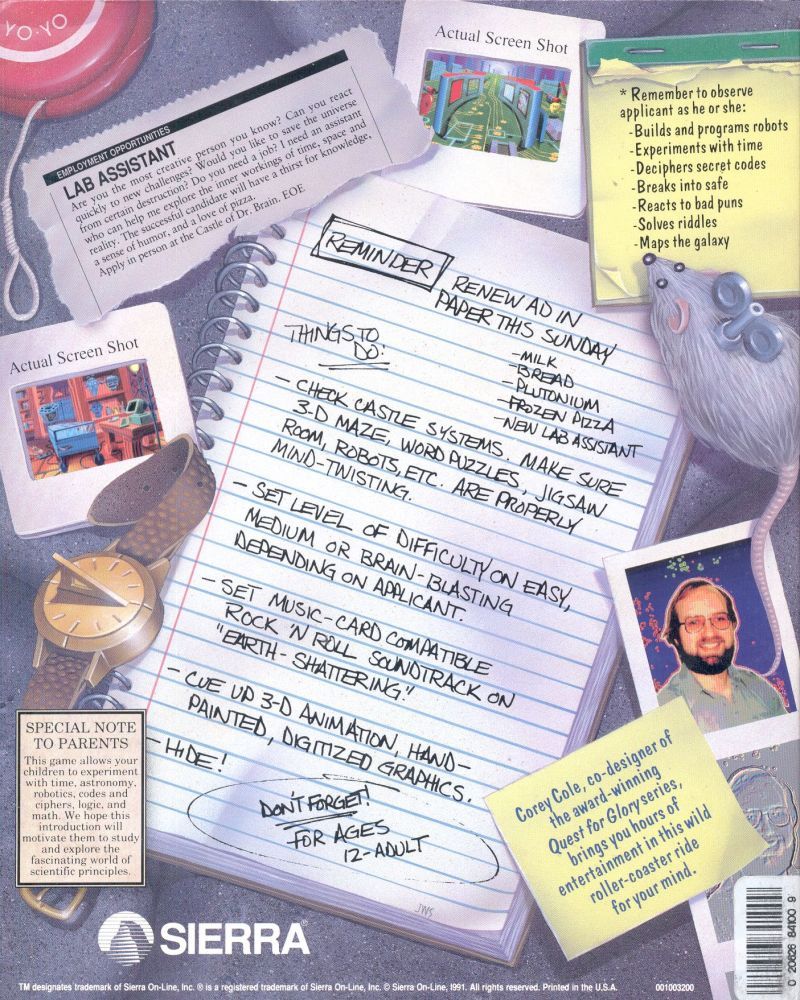 YO-YO
EMPLOYMENT OPPORTUNITIES
LAB ASSISTANT
Are you the most creative person you know? Can you react
quickly to new challenges? Would you like to save the universe
from certain destruction? Do you need a job? I need an assistant
who can help me explore the inner workings of time, space and
reality. The successful candidate will have a thirst for knowledge,
a sense of humor, and a love of pizza.
Apply in person at the Castle of Dr. Brain. EOE
Actual Screen Shot
* Remember to observe
applicant as he or she:
-Builds and programs robots
-Experiments with time
-Deciphers secret codes
-Breaks into safe
-Reacts to bad puns
-Solves riddles
-Maps the galaxy
REMINDER
RENEW AD IN
PAPER THIS SUNDAY
-MILK
-BREAD
-PLUTONIUM
-FROZEN PIZZA
-NEW LAB ASSISTANT
THINGS TO
DO:
- CHECK CASTLE SYSTEMS. MAKE SURE
3-D MAZE, WORD PUZZLES, JIGSAW
ROOM, ROBOTS, ETC. ARE PROPERLY
MIND-TWISTING.
- SET LEVEL OF DIFFICULTY ON EASY,
MEDIUM OR BRAIN-BLASTING
DEPENDING ON APPLICANT.
- SET MUSIC-CARD COMPATIBLE
ROCK 'N ROLL SOUNDTRACK ON
"EARTH-SHATTERING."
- CUE UP 3-D ANIMATION, HAND-
PAINTED, DIGITIZED GRAPHICS.
- HIDE!
DON'T FORGET!
FOR AGES
12-ADULT
JWS
Actual Screen Shot
SPECIAL NOTE
TO PARENTS
This game allows your
children to experiment
with time, astronomy,
robotics, codes and
ciphers, logic, and
math. We hope this
introduction will
motivate them to study
and explore the
fascinating world of
scientific principles.
Corey Cole, co-designer of
the award-winning
Quest for Glory series,
brings you hours of
entertainment in this wild
roller-coaster ride
for your mind.
SIERRA®
TM designates trademark of Sierra On-Line, Inc. ® is a registered trademark of Sierra On-Line, Inc. © Sierra On-Line, 1991. All rights reserved. Printed in the U.S.A.
001003200
0 20626 84100 9